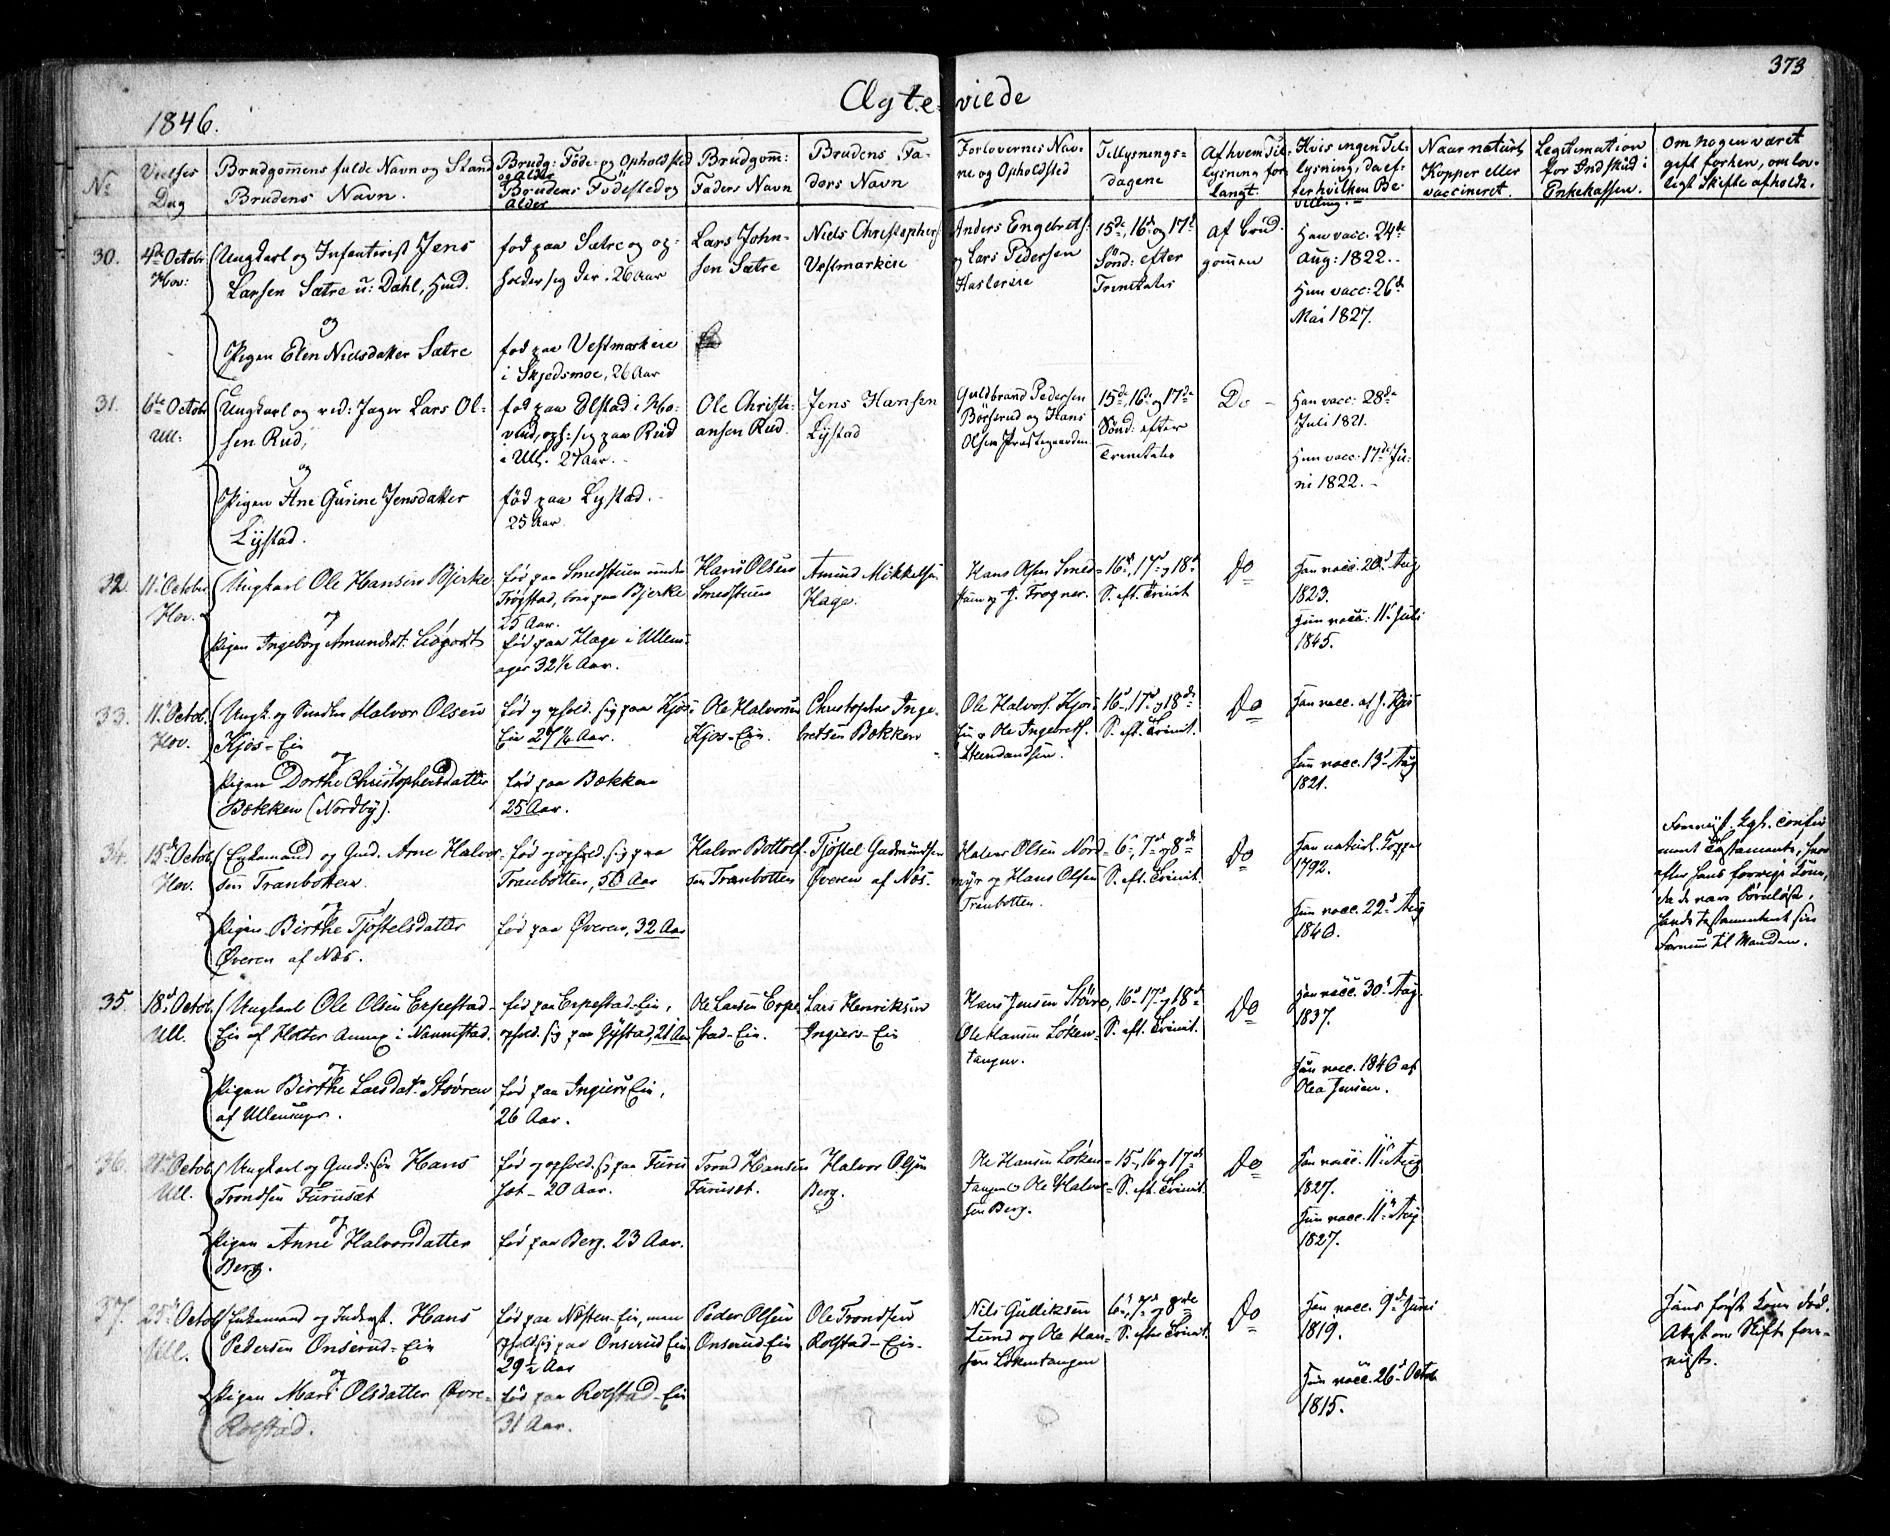 373
Ægte-viede
1846.
No
Vielses
Dag
Brudgommens fulde Navn og Stand
Brudens Navn.
Brudg: Föde- og Opholdsted
og Alder
Brudens Födested og
Alder
Brudgom:
Faders Navn
Brudens Fa-
ders Navn
Forlovernes Nav-
ne og Opholdsted
Tillysnings-
dagene
Af hvem Til-
lysning for-
langt.
Hvis ingen Til-
lysning, da ef-
ter hvilken Be-
villing.
Naar naturl.
Kopper eller
vaccineret.
Legitimation
for Indskud i
Enkekassen.
Om nogen været
gift forhen, om lov-
ligt Skifte afholdt.
30.
4de Octobr
Hov:
Ungkarl og Infanterist Jens
Larsen Sætre u: Dahl, Hurd.
og
Pigen Elen Nielsdatter Sætre
fød paa Sætre og op-
holder sig der. 26 Aar
fød paa Vestmarkeie
i Skjedsmoe, 26 Aar
Lars John-
sen Sætre
Niels Christophers
Vestmarkeie
Anders Engebrets:
og Lars Pedersen
Hasler eie
15de, 16de og 17de
Sönd: efter
Trinitatis
af Brud-
gommen
Han vacc. 24de
Aug: 1822.
Hun vacc: 26de
Mai 1827.
31.
6te Octob
Ull:
Ungkarl og rid: Jæger Lars Ol-
sen Rud,
og
Pigen Ane Gurine Jensdatter
Lystad.
fød paa Ølstad i Ho-
vind, oph: sig paa Rud
i Ull. 27 Aar.
fød paa Lystad.
25 Aar
Ole Christi-
ansen Rud.
Jens Hansen
Lystad
Guldbrand Pedersen
Börserud og Hans
Olsen Præstegaarden
15de, 16de og 17de
Sönd: efter
Trinitatis
Do
Han vacc: 28de
Juli 1821.
Hun vacc: 17de Ju-
ni 1822.
32.
11te October
Hov.
Ungkarl Ole Hansen Bjerke
og
Pigen Ingeborg Amundsd:
fød paa Smedstuen under
Trøgstad, boer paa Bjerke
25 Aar.
fød paa Hage i Ullens-
ager 32½ Aar.
Hans Olsen
Smedstuen
Amund Mikkelsen
Hage.
Hans Olsen Smed-
stuen og J. Frogner.
16de, 17de og 18de
S. eft. Trinit
Do
Han vacc. 20de Aug
1823.
Hun vacc: 11te Juli
1845.
33.
11te Octob.
Hov.
Ungk. og Halvor Olsen
Kjos-Eie
og
Pigen Dorthe Christophersdatter
Bekken (Nordby).
fød og ophold. sig paa Kjos-
Eie 27½ Aar.
fød paa Bekken
25 Aar.
Ole Halvorsen
Kjos-Eie.
Christopher Inge-
bretsen Bekken
Ole Halvors. Kjos-
Eie og Ole Ingebrets.
16de, 17de og 18de
S. eft. Trinit.
Do
Han vacc. af J. Kjos
Hun vacc. 13de Aug
1821.
34.
15de Octob.
Hov.
Enkemand og Gmd. Arne Halvor-
sen Tranbotten.
og
Pigen Birthe Tjöstelsdatter
Øveren af Næs.
fød og ophold. sig paa
Tranbotten, 50 Aar
fød paa Øveren, 32 Aar
Halvor Bottolf-
sen Tranbotten
Tjöstel Gudmundsen
Øveren af Næs.
Halvor Olsen Nord-
myr og Hans Olsen
Tranbotten.
6te, 7de og 8de
S. eft. Trinit.
Do
Han naturl. Kopper
1792.
Hun vacc. 22de Aug
1840.
Forevist Kgl. confir-
meret Testamente, hvor-
efter hans forrige Kone,
da de vare børnløse,
havde testamenteret sin
Formue til Manden.
35.
18de Octob.
Ull.
Ungkarl Ole Olsen Erpestad-
Eie af Holter Annex i Nannestad.
og
Pigen Birthe Larsdatr Støvren
af Ullensager.
fød paa Erpestad-Eie,
ophold. sig paa Gystad, 21 Aar
fød paa Ingiers Eie,
26 Aar.
Ole Larsen Erpe-
stad-Eie.
Lars Henriksen
Ingiers-Eie
Hans Jensen Støvre,
Ole Hansen Løken-
tangen.
16de, 17de og 18de
S. eft. Trinit.
Do
Han vacc. 30te Aug.
1837.
Hun vacc. 1846 af
Olea Jensen.
36.
21de Octob.
Ull.
Ungkarl og Gmd: sön Hans
Trondsen Furuset
og
Pigen Anne Halvorsdatter
Berg.
fød og ophold. sig paa Furu-
set - 20 Aar.
fød paa Berg. 23 Aar.
Trond Hansen
Furuset.
Halvor Olsen
Berg.
Ole Hansen Løken-
tangen og Ole Halvor-
sen Berg.
15, 16 og 17de
S. eft. Trinit.
Do
Han vacc. 11te Aug
1827.
Hun vacc. 11te Aug
1827.
37.
25de Octob
Ull.
Enkemand og Inderst. Hans
Pedersen Onserud-Eie
og
Pigen Mari Olsdatter Øvre-
Rolstad.
fød paa Nösten-Eie, men
ophold. sig paa Onserud Eie
29½ Aar
fød paa Rolstad-Eie
31 Aar.
Peder Olsen
Onserud Eie
Ole Trondsen
Rolstad-Eie.
Nils Gulliksen
Lund og Ole Han-
sen Lökentangen
6te, 7de og 8de
S. efter Trinit.
Do
Han vacc. 9de Juni
1819.
Hun vacc. 26de Octob
1815.
Hans første Kone død.
Attest om Skifte fore-
vist.